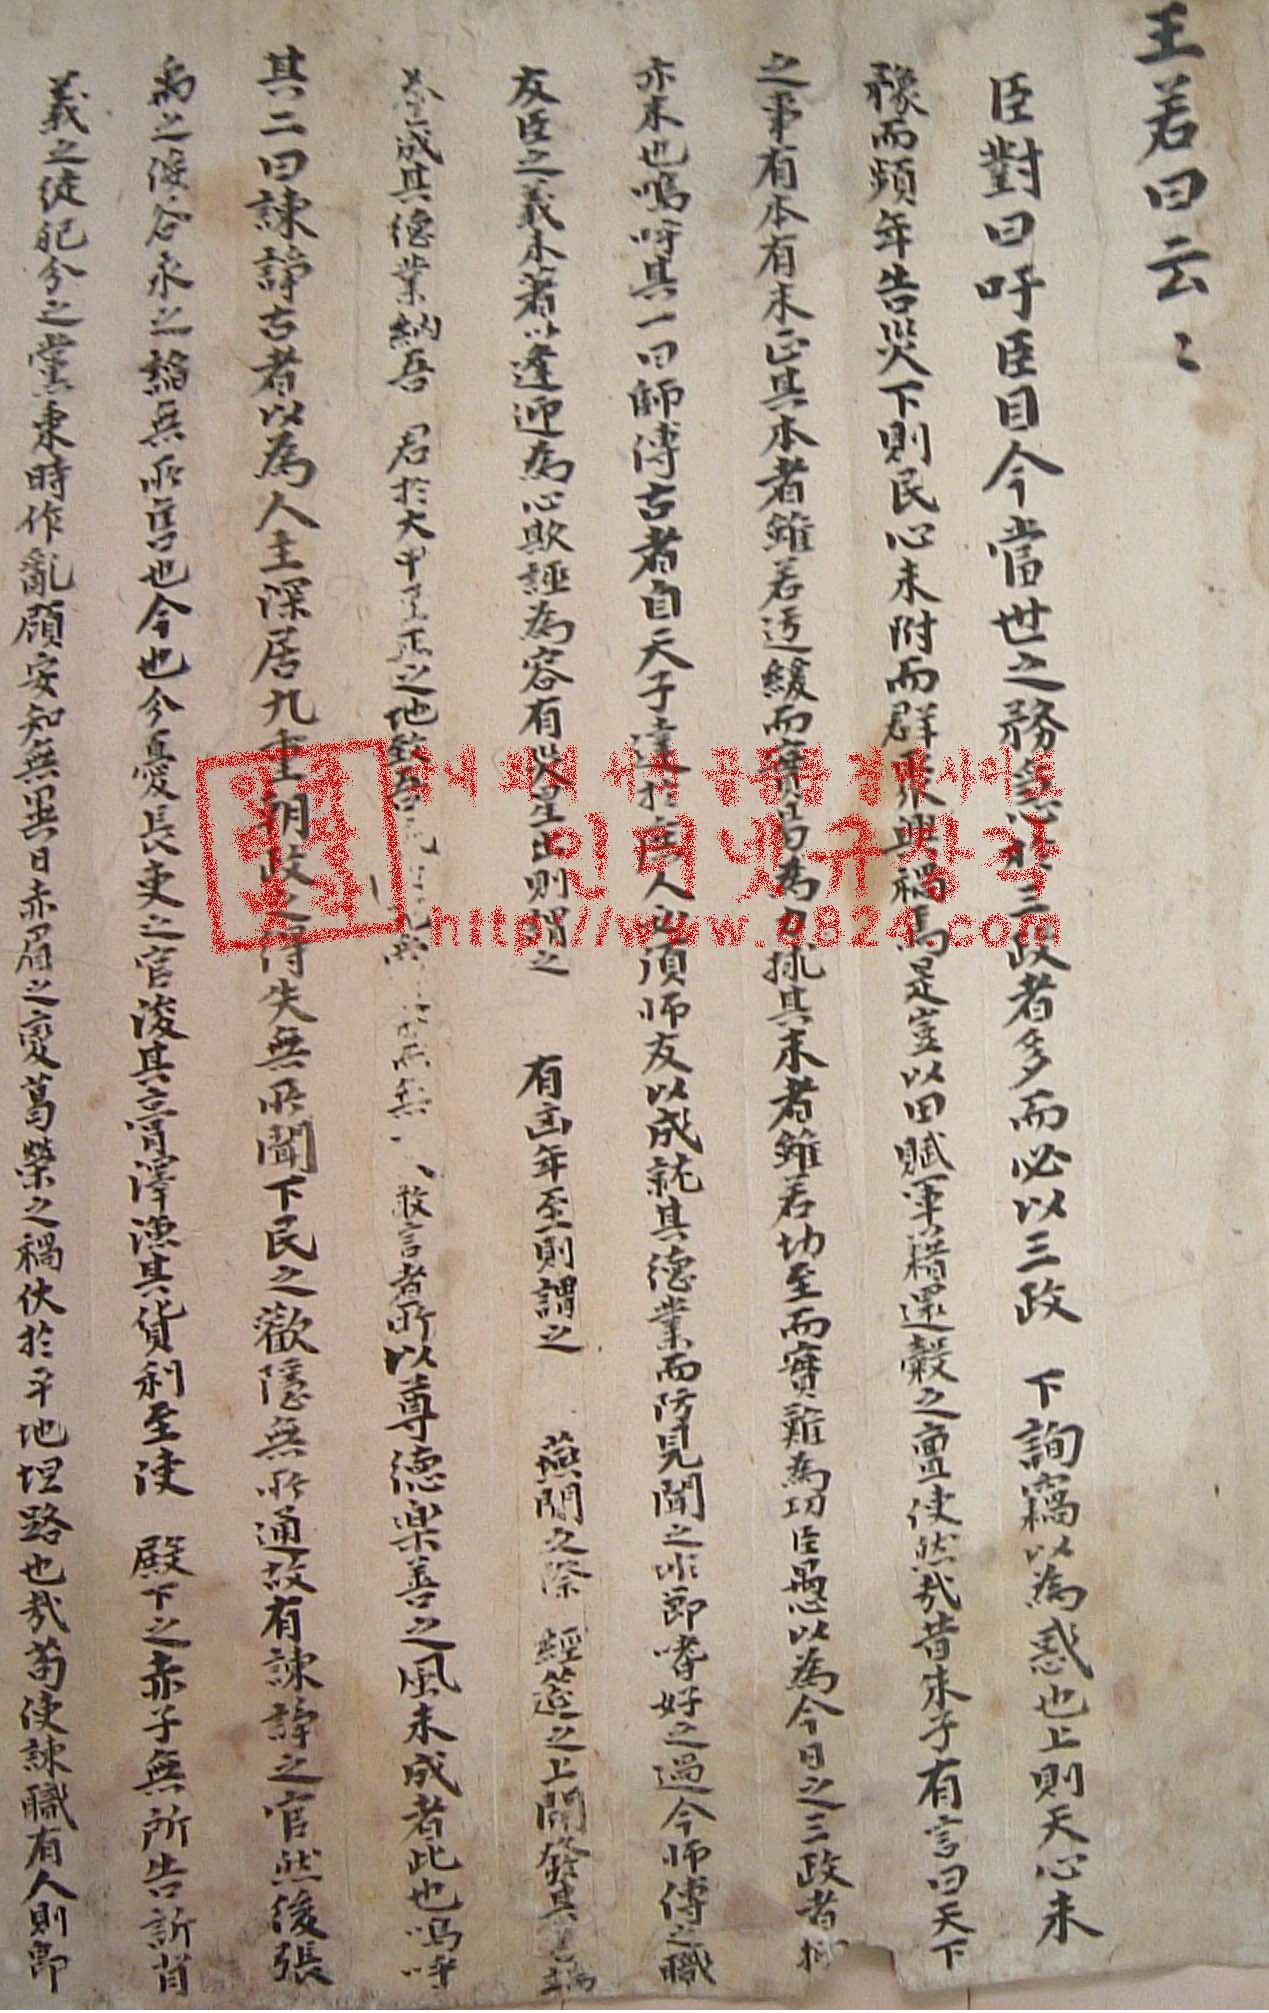 王若曰云〻
臣對曰吁臣目今當世之務急於三政者多而必以三政 下詢竊以為惑也上則天心未
豫而頻年告災下則民心未附而群聚興禍焉是豈以田賦軍籍還穀之亶使然哉昔朱子有言曰天下
之事有本有末正其本者雖若迂緩而實易為力捄其末者雖若切至而實難為功臣愚以為今日之三政者抑
亦末也嗚呼其一曰師傅古者自天子達於庶人必須師友以成就其德業而防見聞之非節嗜好之過今師傅之職
友臣之義未著以逢迎為心欺誣為容有災星出則謂之 有凶年至則謂之 燕閒之際 經筵之上開發其善端
成其德業納吾 君於大中至正之地致吾民 無一人敢言者所以尊德樂善之風未成者此也嗚呼
其二曰諫諍古者以為人主深居九重朝政之得失無所聞下民之歡隱無所通故有諫諍之官然後張
禹之佞谷永之諂無所售也今也今憂長吏之官浚其膏澤漁其貨利至使 殿下之赤子無所告訴肖
義之徒祀分之黨東時作亂顧安知無異日赤眉之變葛榮之禍伏於平地坦路也哉苟使諫職有人則郎
국내 외의 서적 공용품 경매사이트
인터넷규장각
http://www.8824.com